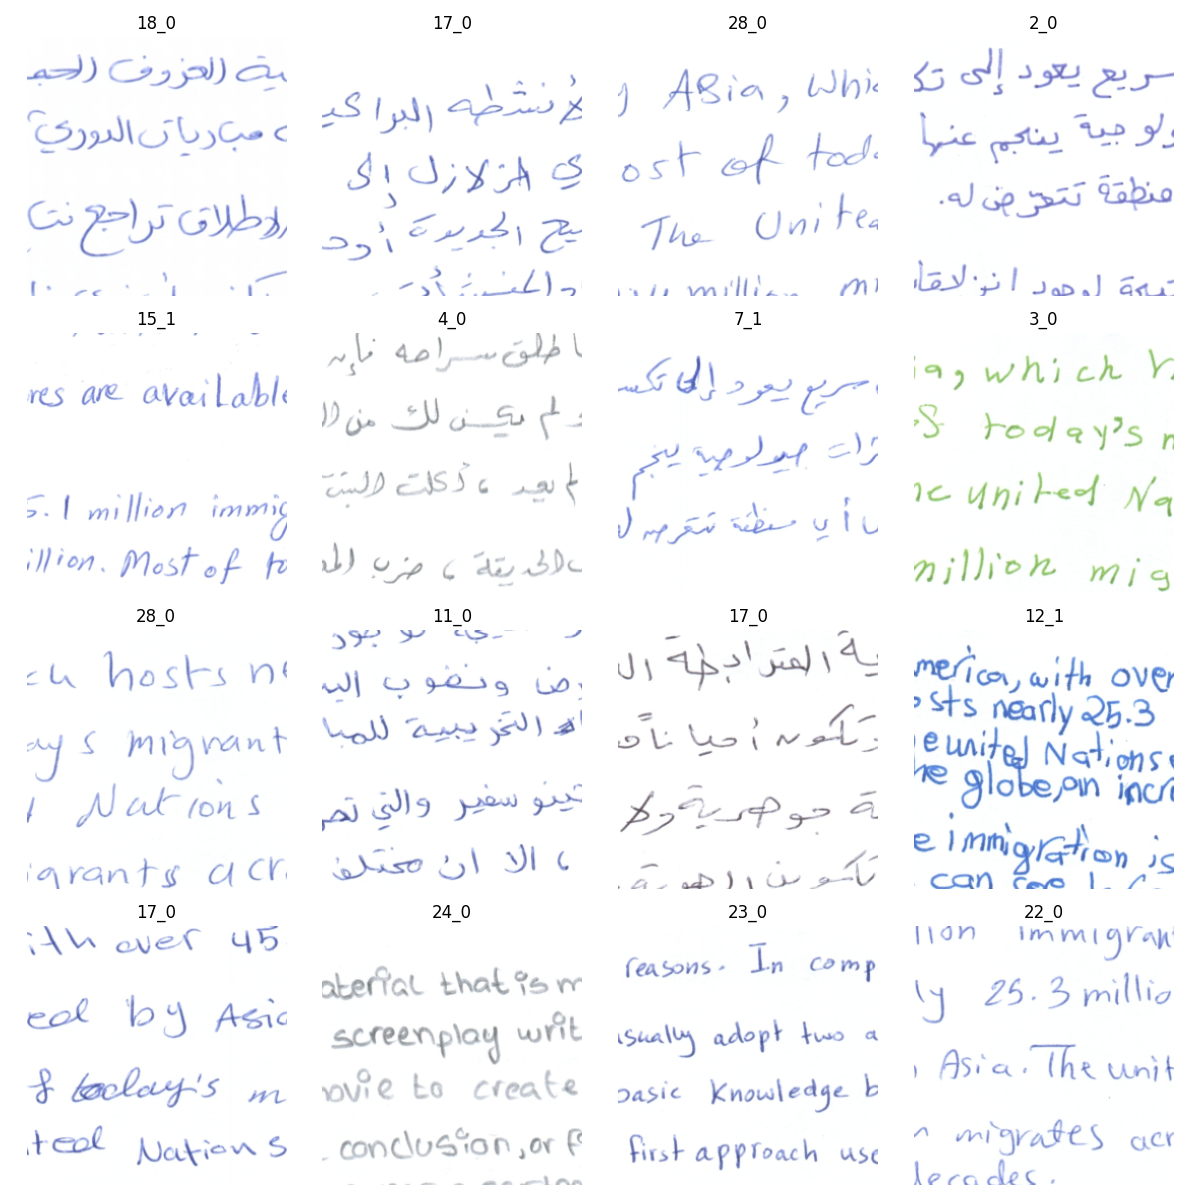 18_0
ية العزوف الجم
مباريات الدوري
تراجع نت
17_0
الأنشطه البراكي
ي الزلازل إلى
يح الجديدة أود
28_0
Asia, Whic
ost of toda
The United
million mi
2_0
سريع يعود إلى تك
ولوجية ينجم عنها
منطقة تتعرض له.
تيجة لوجود انزلاقا
15_1
res are available
5.1 million immig
illion. Most of to
4_0
اطلق سراحه فإنه
و لم يكن لك من ال
لم بعد ، أكلت البنت
الحديقة ، ضرب الم
7_1
سريع يعود إلى تكس
زات جيولوجية ينجم
أي منطقة تتعرض ل
3_0
ia, which h
of today's m
he united Na
million mig
28_0
ch hosts ne
ay s migrant
d Nations
igrants acr
11_0
وض ونضوب الي
التخريبية للمبا
تينو سفير والتي تص
، الا ان مختلف
17_0
ية المترابطة ال
وتكون أحيانًا و
ة جوهرية ولا
تكون الهوية
12_1
merica, with over
osts nearly 25.3
e united Nations
he globe, an incr
e immigration is
can see
17_0
ith over 45
ed by Asia
f today's m
ted Nations
24_0
aterial that is m
screenplay writ
ovie to create
conclusion, or f
23_0
reasons. In comp
usually adopt two a
basic Knowledge b
first approach use
22_0
lion immigran
ly 25.3 millio
Asia. The unit
n migrates acr
decades.